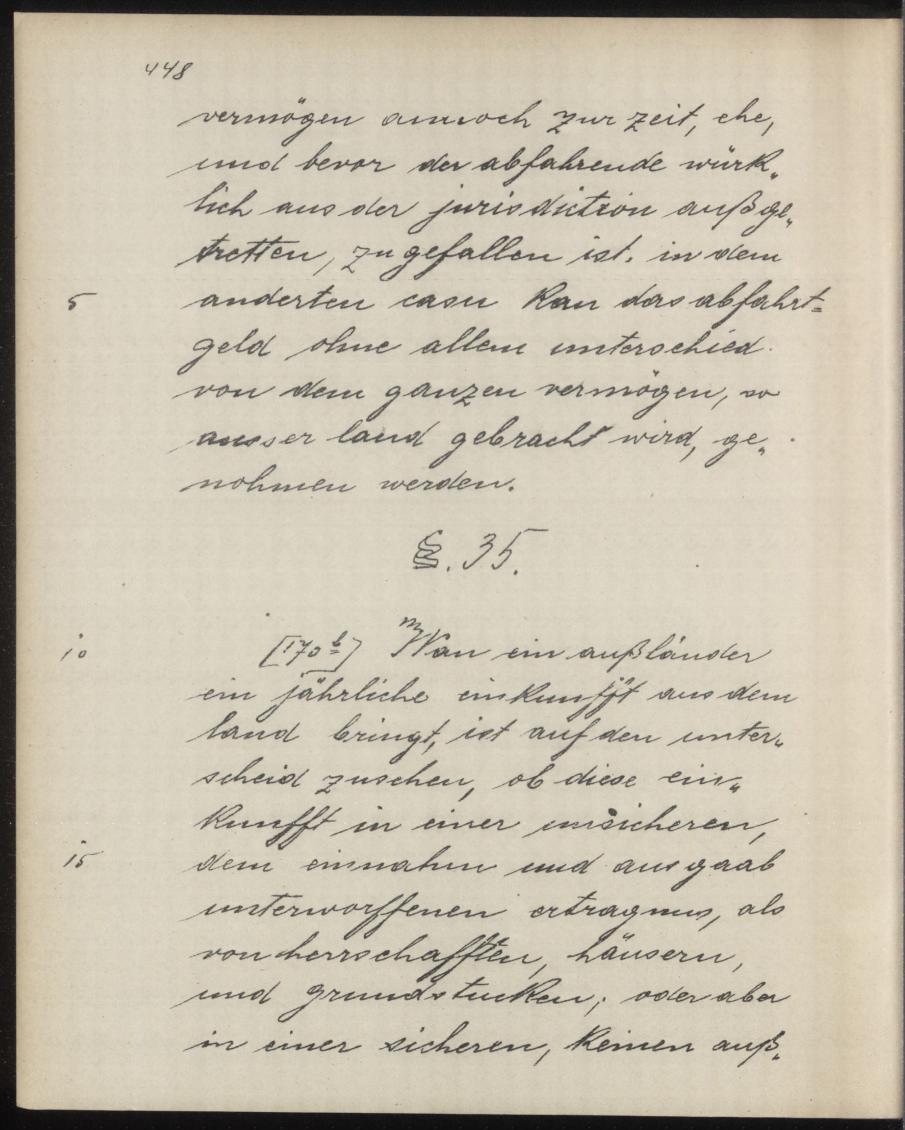 448
vermögen annoch zur zeit, ehe,
und bevor der abfahrende würk„
lich aus der jurisdiction außge„
tretten, zugefallen ist. in dem
5 anderten casu kan das abfahrt=
geld ohne allem unterschied
von dem ganzen vermögen, so
ausser land gebracht wird, ge„
nohmen werden.
§. 35.
10 [170b] Wan ein außländer
ein jährliche einkunfft aus dem
land bringt, ist auf den unter„
scheid zusehen, ob diese ein„
kunfft in einer unsicheren,
15 dem einnahm und ausgaab
unterworffenen ertragnus, als
von herrschafften, häusern,
und grundstucken; oder aber
in einer sicheren, keinen auß„